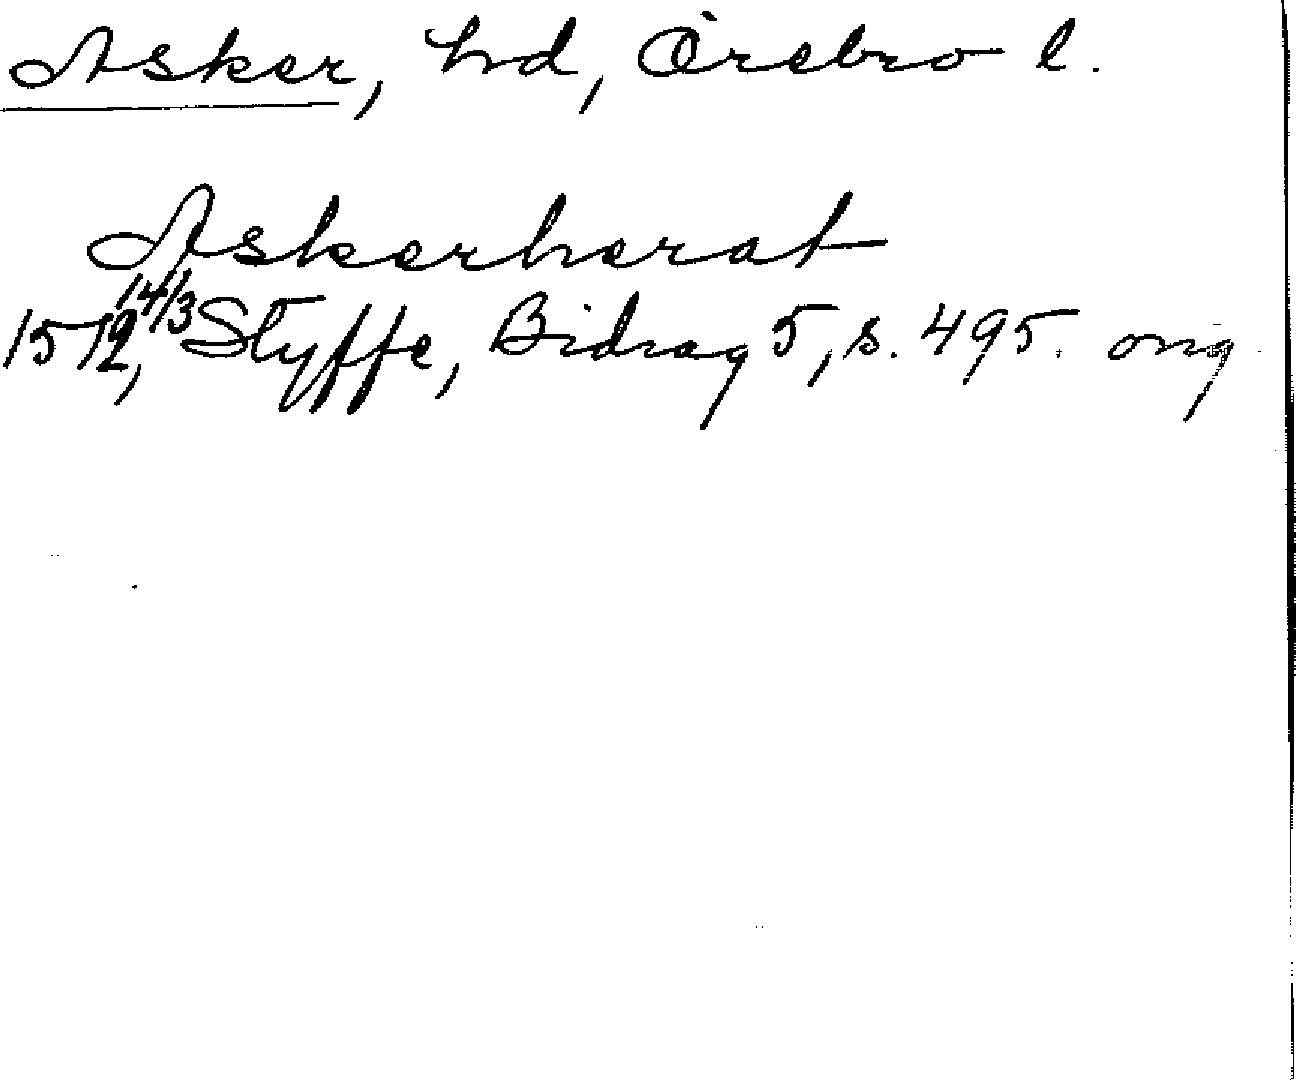 Asker, hd, Örebro l.
Askerherat
1512 14/3, Styffe, Bidrag 5, s. 495. orig